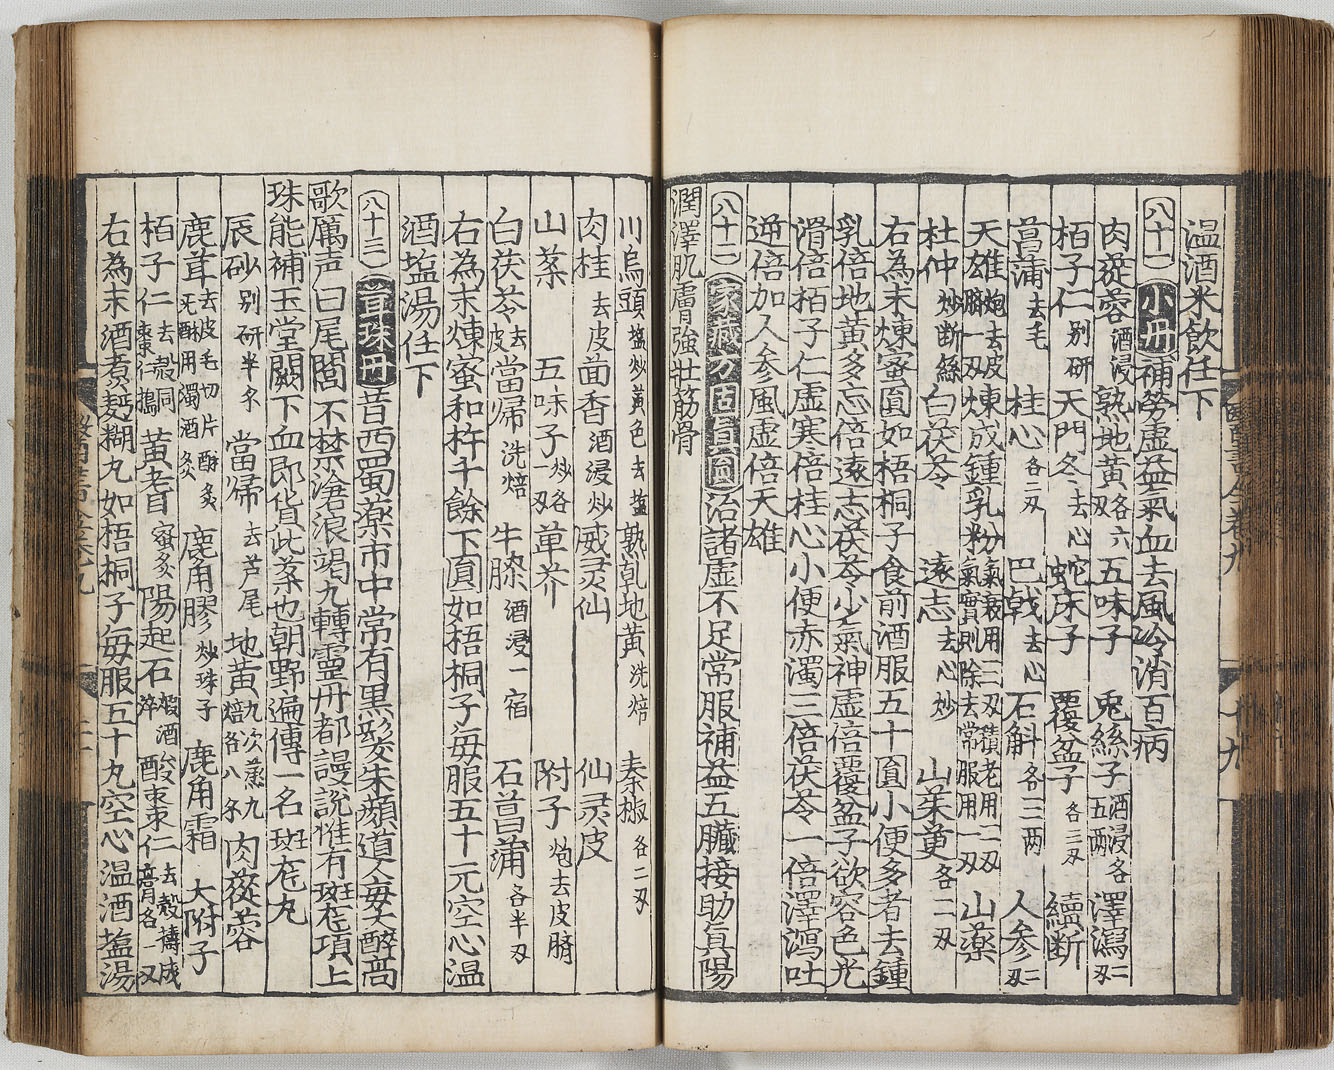 温酒米飲任下
八十一 小丹 補勞虛益氣血去風冷消百病
肉蓯蓉酒浸 熟地黃各六刄 五味子 兎絲子酒浸各五兩 澤瀉二刄
栢子仁别研 天門冬去心 蛇床子 覆盆子各三刄 續断
菖蒲去毛 桂心各二刄 巴戟去心 石斛各三两 人参二刄
天雄炮去皮臍一刄 煉成鍾乳粉氣衰用三刄積老用二刄氣實則除去常服用一刄 山藥
杜仲炒断絲 白茯苓 遠志去心炒 山茱萸各二刄
右為末煉蜜圓如梧桐子食前酒服五十圓小便多者去鍾
乳倍地黃多忘倍遠志茯苓少氣神虛倍覆盆子欲容色光
滑倍栢子仁虛寒倍桂心小便赤濁三倍茯苓一倍澤瀉吐
逆倍加人参風虛倍天雄
八十二 家藏方固真圓 治諸虛不足常服補益五臟接助真陽
潤澤肌膚強壯筋骨
川烏頭塩炒黃色去塩 熟乾地黃洗焙 秦椒各二刄
肉桂去皮 茴香酒浸炒 威灵仙 仙灵皮
山藥 五味子炒各一刄 萆芥 附子炮去皮臍
白茯苓去皮 當帰洗焙 牛膝酒浸一宿 石菖蒲各半刄
右為末煉蜜和杵千餘下圓如梧桐子每服五十元空心温
酒塩湯任下
八十三 茸珠丹 昔西蜀藥市中常有黑髮朱顏道人每大醉高
歌厲声曰尾閭不禁滄浪竭九轉霊丹都謾說惟有斑龙項上
珠能補玉堂闕下血郎货此藥也朝野遍傳一名斑龙丸
辰砂别研半夕 當帰去芦尾 地黃九次蒸九焙各八夕 肉蓯蓉
鹿茸去皮毛切片酥炙无酥用濁酒炙 鹿角膠炒珠子 鹿角霜 大附子
栢子仁去殻同棗仁擣 黃耆蜜炙 陽起石煆酒淬 酸枣仁去殻擣成膏各一刄
右為末酒煮麪糊丸如梧桐子每服五十丸空心温酒塩湯